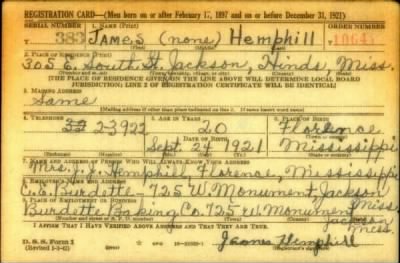 REGISTRATION CARD—(Men born on or after February 17, 1897 and on or before December 31, 1921)
SERIAL NUMBER 1. NAME (Print) ORDER NUMBER
383 James (none) Hemphill 10641
(First) (Middle) (Last)
2. PLACE OF RESIDENCE (Print)
305 E. South St. Jackson, Hinds, Miss.
(Number and street) (Town, township, village, or city) (County) (State)
[THE PLACE OF RESIDENCE GIVEN ON THE LINE ABOVE WILL DETERMINE LOCAL BOARD
JURISDICTION; LINE 2 OF REGISTRATION CERTIFICATE WILL BE IDENTICAL]
3. MAILING ADDRESS
Same
[Mailing address if other than place indicated on line 2. If same insert word same]
4. TELEPHONE 5. AGE IN YEARS 6. PLACE OF BIRTH
2-3922 20 Florence
DATE OF BIRTH (Town or county)
Sept. 24 1921 Mississippi
(Mo.) (Day) (Yr.) (State or country)
7. NAME AND ADDRESS OF PERSON WHO WILL ALWAYS KNOW YOUR ADDRESS
Mrs. J. J. Hemphill, Florence, Mississippi
8. EMPLOYER'S NAME AND ADDRESS
C. E. Burdette 725 W. Monument Jackson Miss.
9. PLACE OF EMPLOYMENT OR BUSINESS
Burdette Baking Co. 725 W. Monument Jackson Miss.
I AFFIRM THAT I HAVE VERIFIED ABOVE ANSWERS AND THAT THEY ARE TRUE.
D. S. S. Form 1
(Revised 1-5-42) (over) James Hemphill